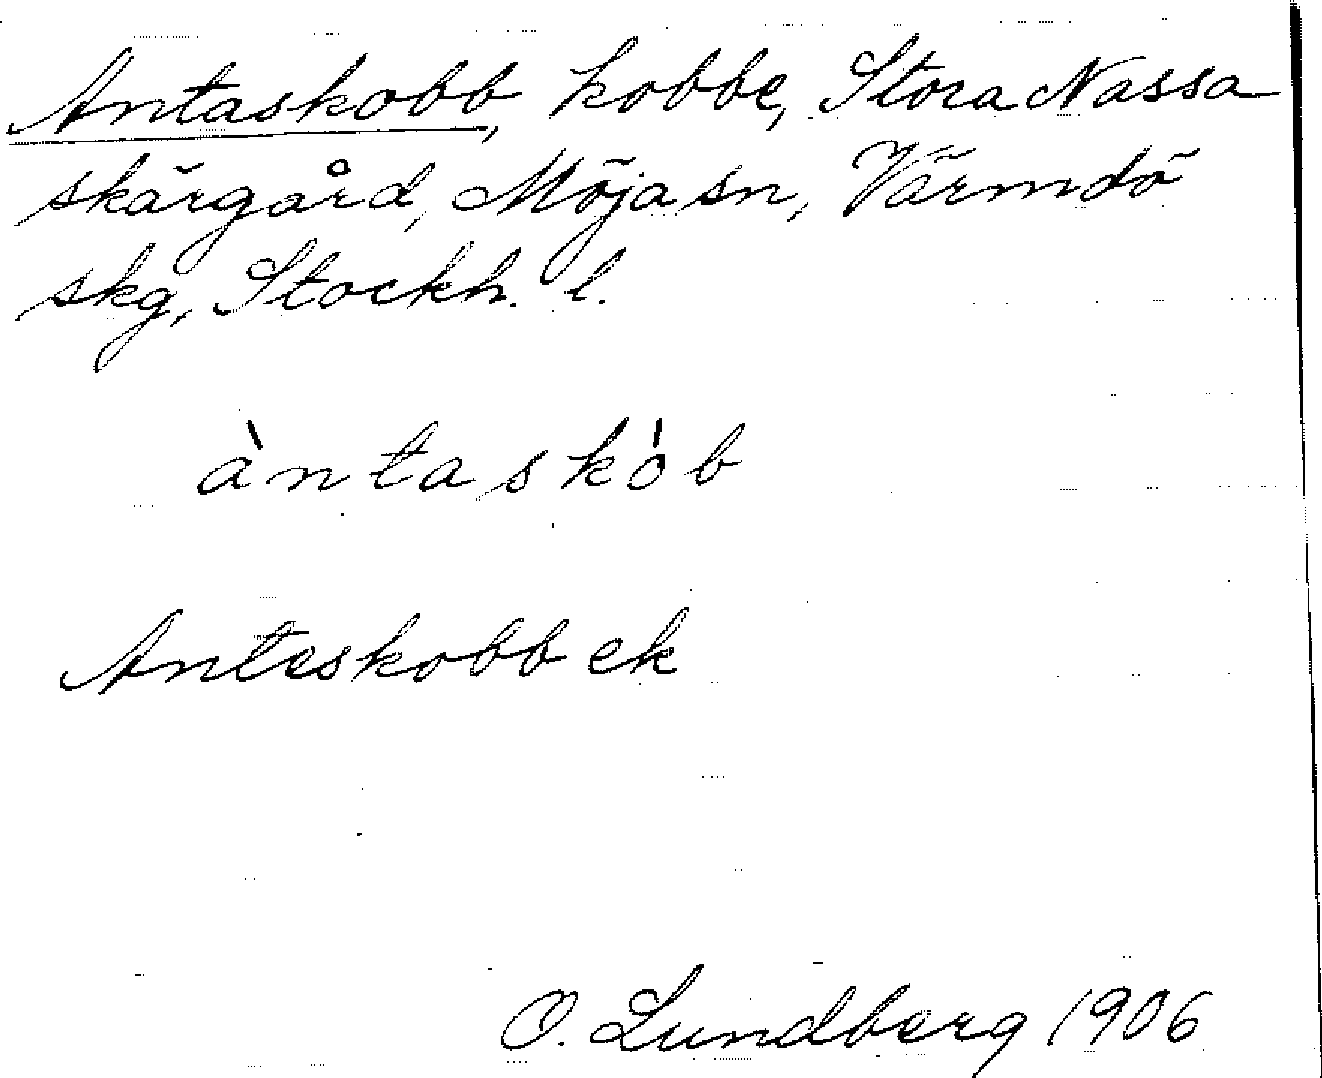 Antaskobb, kobbe, Stora Nassa
skärgård, Möja sn, Värmdö
skg, Stockh. l.
àntaskò́b
Anteskobb ek
O. Lundberg 1906